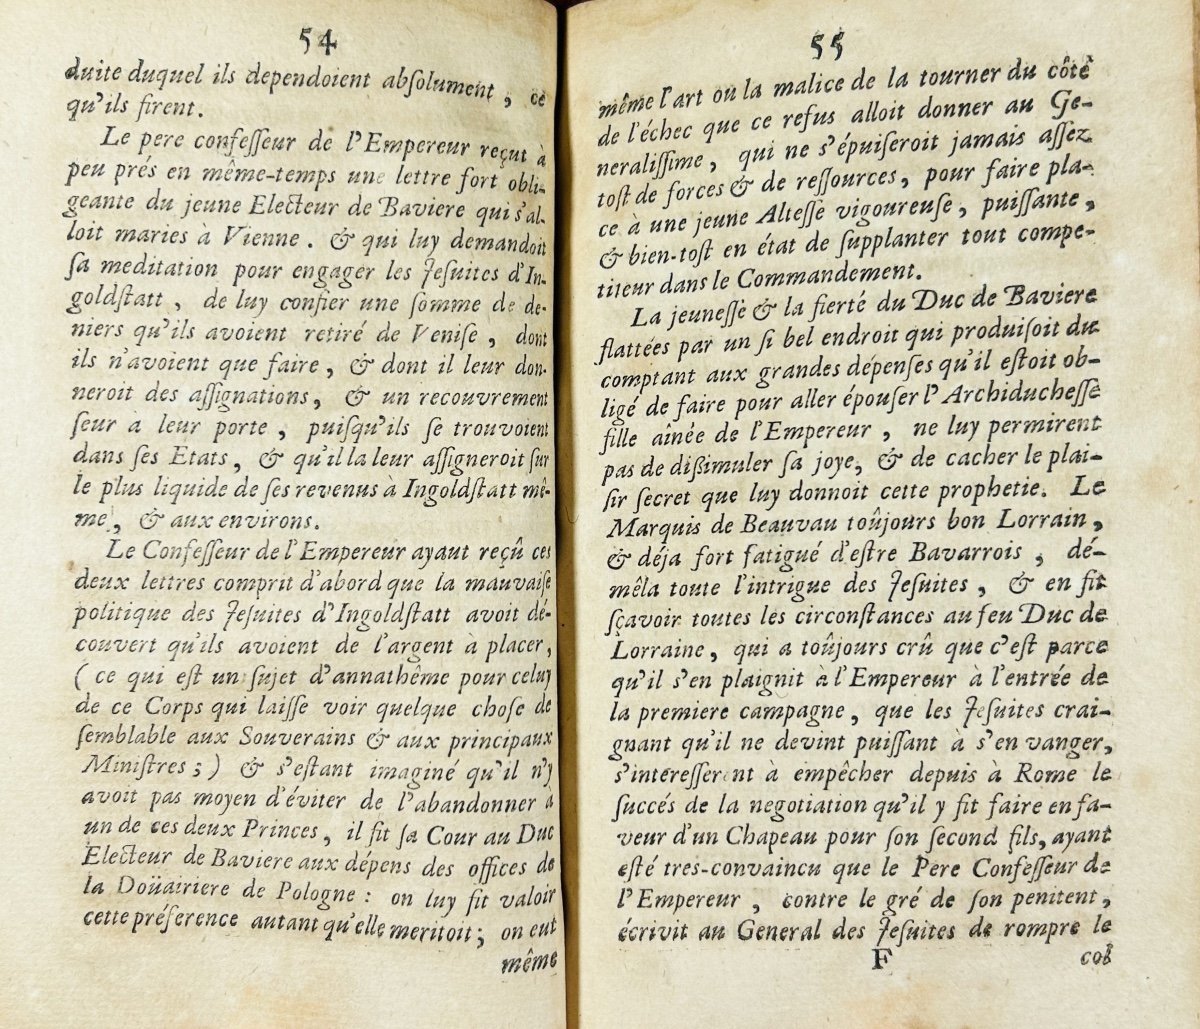 54
duite duquel ils dependoient absolument, ce
qu'ils firent.
Le pere confesseur de l'Empereur reçut à
peu prés en même-temps une lettre fort obli-
geante du jeune Electeur de Baviere qui s'al-
loit maries à Vienne. & qui luy demandoit
sa meditation pour engager les Jesuites d'In-
goldstatt, de luy confier une somme de de-
niers qu'ils avoient retiré de Venise, dont
ils n'avoient que faire, & dont il leur don-
neroit des assignations, & un recouvrement
seur à leur porte, puisqu'ils se trouvoient
dans ses Etats, & qu'il la leur assigneroit sur
le plus liquide de ses revenus à Ingoldstatt mê-
me, & aux environs.
Le Confesseur de l'Empereur ayaut reçû ces
deux lettres comprit d'abord que la mauvaise
politique des Jesuites d'Ingoldstatt avoit dé-
couvert qu'ils avoient de l'argent à placer,
(ce qui est un sujet d'annathême pour celuy
de ce Corps qui laisse voir quelque chose de
semblable aux Souverains & aux principaux
Ministres;) & s'estant imaginé qu'il n'y
avoit pas moyen d'éviter de l'abandonner à
un de ces deux Princes, il fit sa Cour au Duc
Electeur de Baviere aux dépens des offices de
la Doüairiere de Pologne: on luy fit valoir
cette préference autant qu'elle meritoit; on eut
même
55
même l'art ou la malice de la tourner du côté
de l'échec que ce refus alloit donner au Ge-
neralissime, qui ne s'épuiseroit jamais assez
tost de forces & de ressources, pour faire pla-
ce à une jeune Altesse vigoureuse, puissante,
& bien-tost en état de supplanter tout compe-
titeur dans le Commandement.
La jeunesse & la fierté du Duc de Baviere
flattées par un si bel endroit qui produisoit du
comptant aux grandes dépenses qu'il estoit ob-
ligé de faire pour aller épouser l'Archiduchesse
fille aînée de l'Empereur, ne luy permirent
pas de dißimuler sa joye, & de cacher le plai-
sir secret que luy donnoit cette prophetie. Le
Marquis de Beauvau toûjours bon Lorrain,
& déja fort fatigué d'estre Bavarrois, dé-
mêla toute l'intrigue des Jesuites, & en fit
sçavoir toutes les circonstances au feu Duc de
Lorraine, qui a toûjours crû que c'est parce
qu'il s'en plaignit à l'Empereur à l'entrée de
la premiere campagne, que les Jesuites crai-
gnant qu'il ne devint puissant à s'en vanger,
s'interesserent à empêcher depuis à Rome le
succés de la negotiation qu'il y fit faire en fa-
veur d'un Chapeau pour son second fils, ayant
esté tres-convaincu que le Pere Confesseur de
l'Empereur, contre le gré de son penitent,
écrivit au General des Jesuites de rompre le
F
col